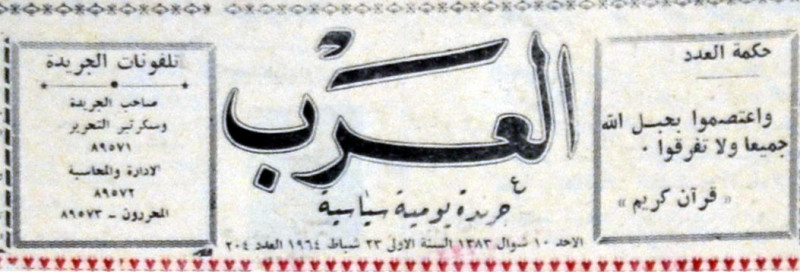 حكمة العدد
واعتصموا بحبل الله
جميعا ولا تفرقوا ٠
« قرآن كريم »
العرب
جريدة يومية سياسية
الاحد ١٠ شوال ١٣٨٣ السنة الاولى ٢٣ شباط ١٩٦٤ العدد ٢٠٤
تلفونات الجريدة
صاحب الجريدة
وسكرتير التحرير
٨٩٥٧١
الادارة والمحاسبة
٨٩٥٧٢
المحررون – ٨٩٥٧٣